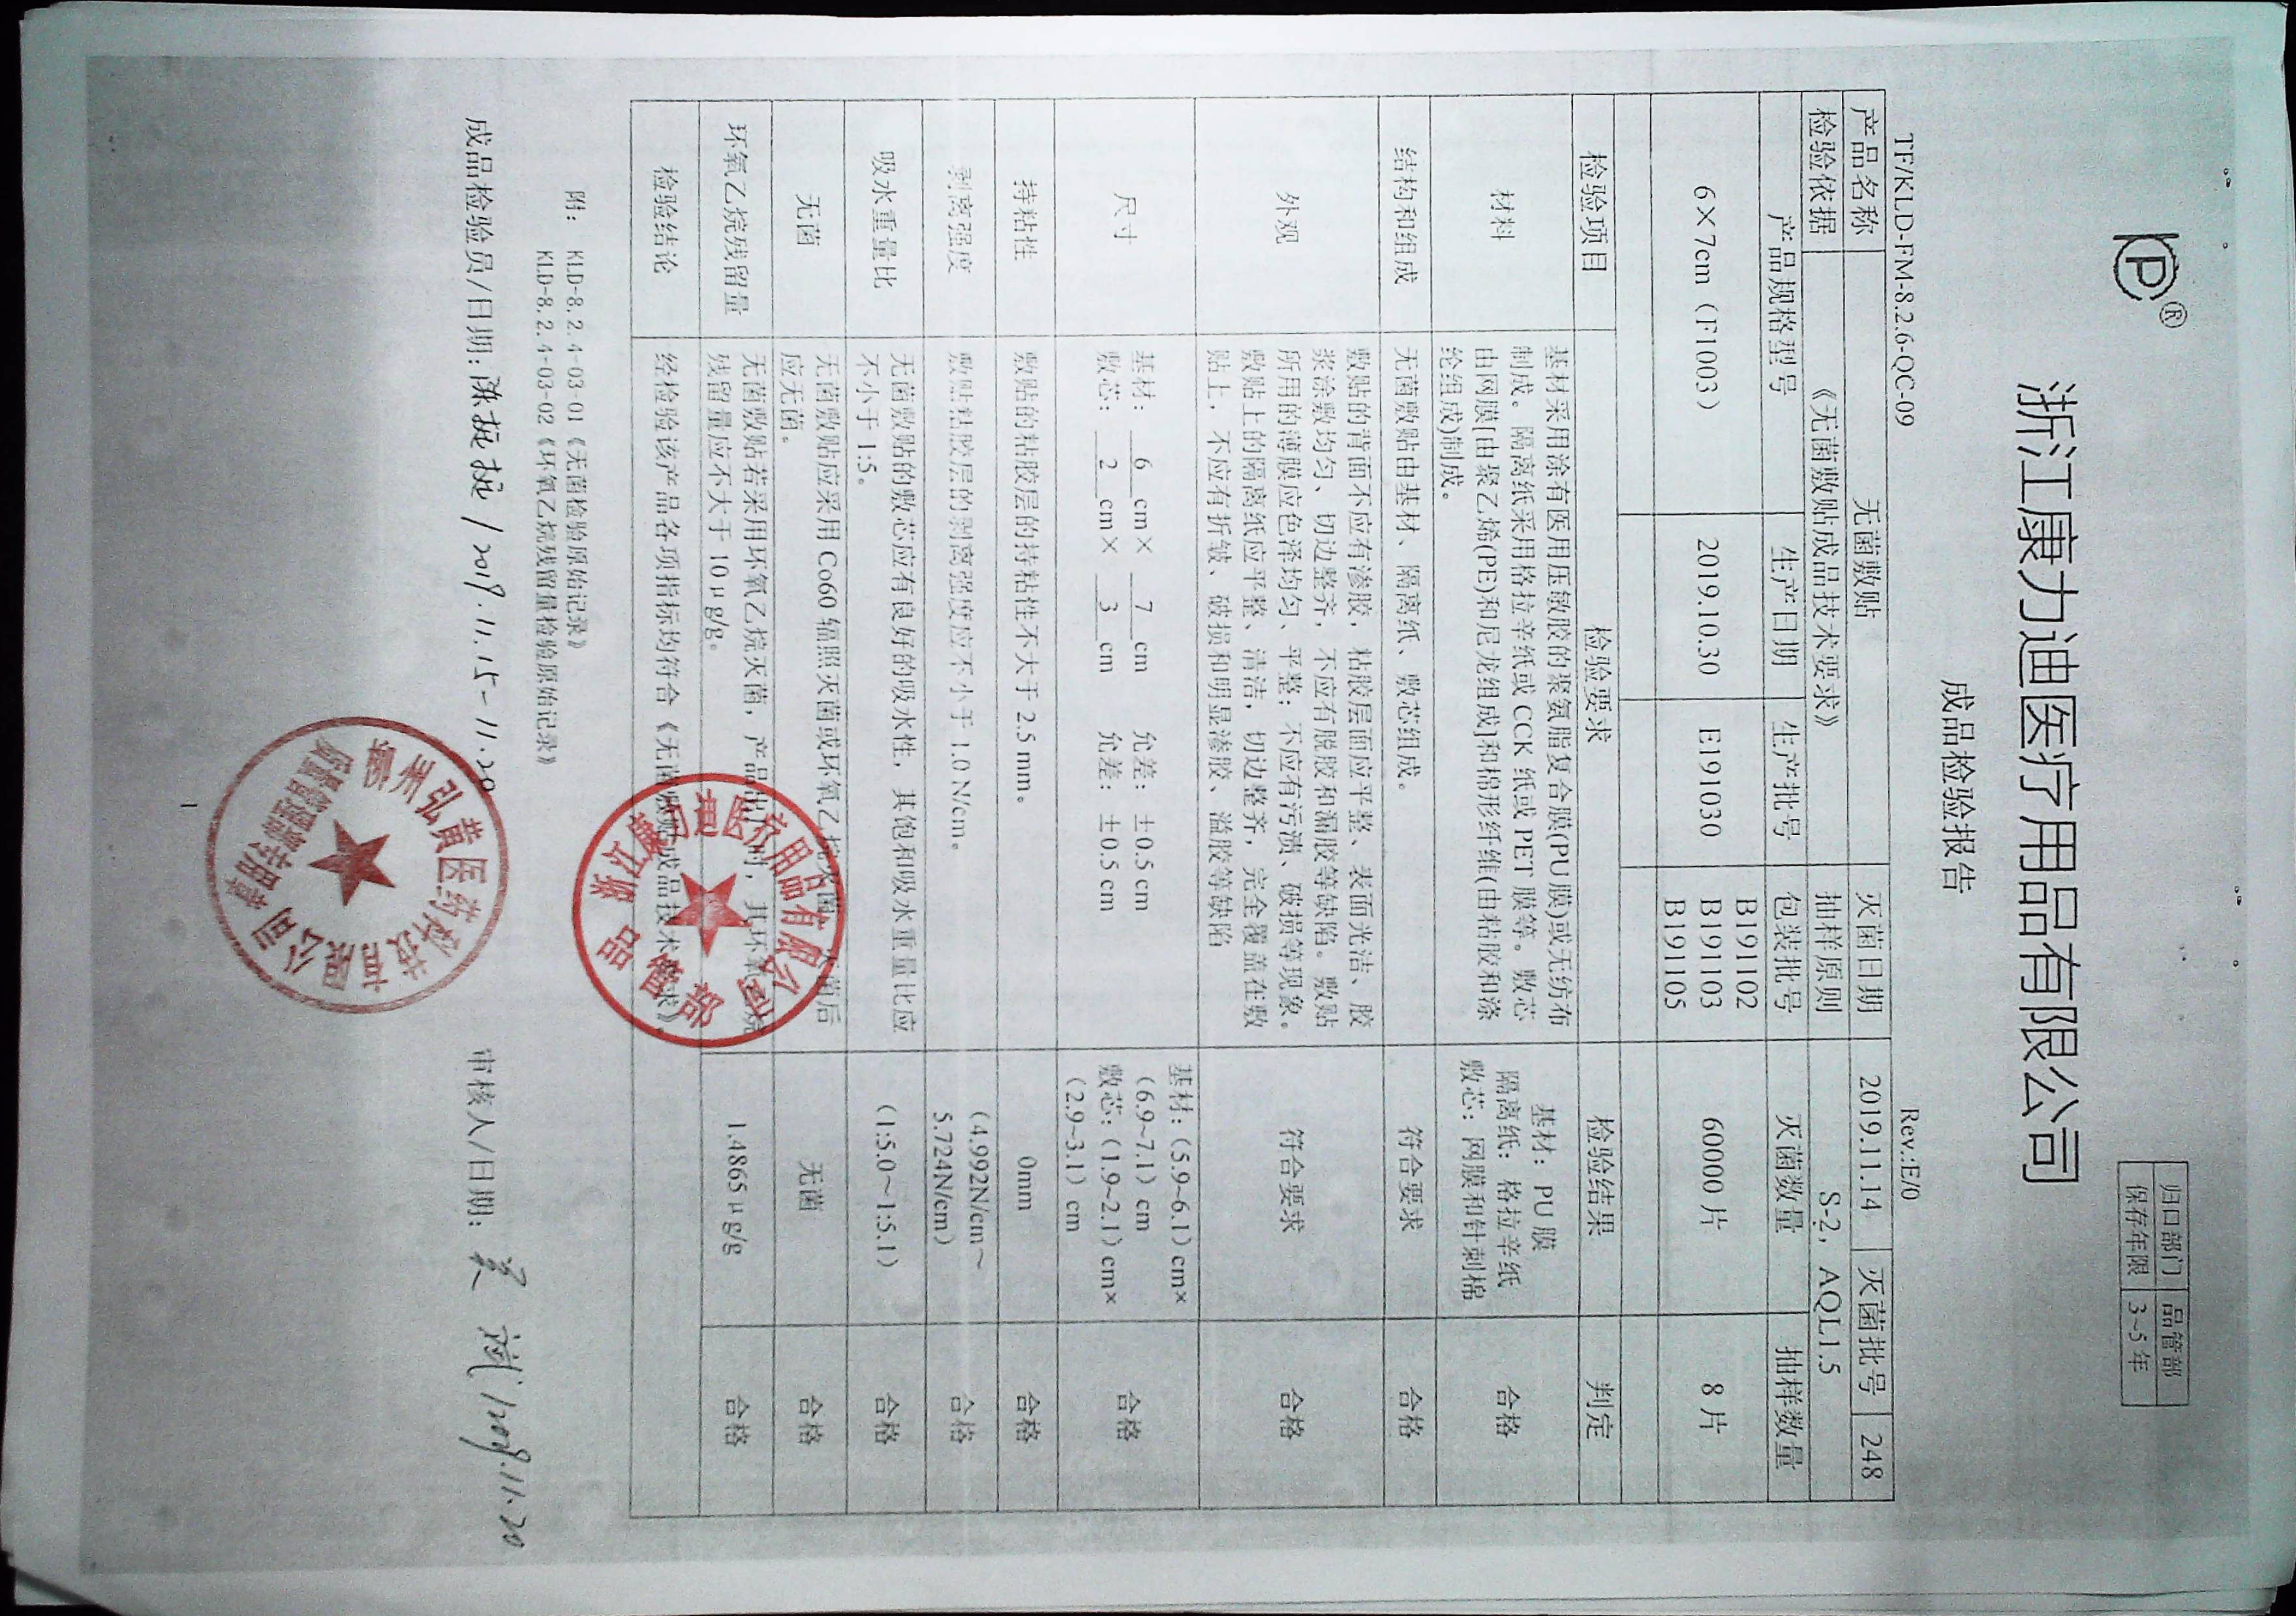 KP®
归口部门 品管部
保存年限 3~5 年
浙江康力迪医疗用品有限公司
成品检验报告
TF/KLD-FM-8.2.6-QC-09 Rev.:E/0
产品名称 无菌敷贴 灭菌日期 2019.11.14 灭菌批号 248
检验依据 《无菌敷贴成品技术要求》 抽样原则 S-2，AQL1.5
产品规格型号 生产日期 生产批号 包装批号 灭菌数量 抽样数量
6×7cm（F1003） 2019.10.30 E191030 B191102 B191103 B191105 60000 片 8 片
检验项目 检验要求 检验结果 判定
材料
基材采用涂有医用压敏胶的聚氨脂复合膜(PU膜)或无纺布
制成。隔离纸采用格拉辛纸或 CCK 纸或 PET 膜等。敷芯
由网膜[由聚乙烯(PE)和尼龙组成]和棉形纤维(由粘胶和涤
纶组成)制成。
基材：PU 膜
隔离纸：格拉辛纸
敷芯：网膜和针刺棉
合格
结构和组成 无菌敷贴由基材、隔离纸、敷芯组成。 符合要求 合格
外观
敷贴的背面不应有渗胶，粘胶层面应平整、表面光洁、胶
浆涂敷均匀、切边整齐，不应有脱胶和漏胶等缺陷。敷贴
所用的薄膜应色泽均匀、平整；不应有污渍、破损等现象。
敷贴上的隔离纸应平整、清洁，切边整齐，完全覆盖在敷
贴上，不应有折皱、破损和明显渗胶、溢胶等缺陷
符合要求 合格
尺寸
基材： 6 cm× 7 cm 允差：±0.5 cm
敷芯： 2 cm× 3 cm 允差：±0.5 cm
基材：（5.9~6.1）cm×
（6.9~7.1）cm
敷芯：（1.9~2.1）cm×
（2.9~3.1）cm
合格
持粘性 敷贴的粘胶层的持粘性不大于 2.5 mm。 0mm 合格
剥离强度 敷贴粘胶层的剥离强度应不小于 1.0 N/cm。
（4.992N/cm～
5.724N/cm）
合格
吸水重量比
无菌敷贴的敷芯应有良好的吸水性，其饱和吸水重量比应
不小于 1:5。
（1:5.0～1:5.1） 合格
无菌
无菌敷贴应采用 Co60 辐照灭菌或环氧乙烷灭菌，灭菌后
应无菌。
无菌 合格
环氧乙烷残留量
无菌敷贴若采用环氧乙烷灭菌，产品出厂时，其环氧乙烷
残留量应不大于 10μg/g。
1.4865μg/g 合格
检验结论 经检验该产品各项指标均符合《无菌敷贴成品技术要求》。
附： KLD-8.2.4-03-01《无菌检验原始记录》
KLD-8.2.4-03-02《环氧乙烷残留量检验原始记录》
成品检验员/日期: / 2019.11.15-11.20 审核人/日期: /2019.11.20
品管部
州弘黄医药科技有限公司
质量管理部专用章
1